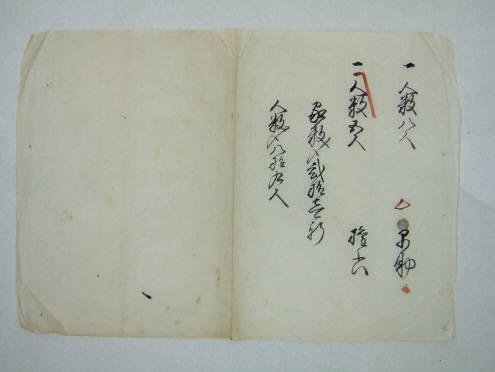 一 人数八人 助
一 人数五人 権六
家数〆弐拾壱軒
人数〆八拾九人